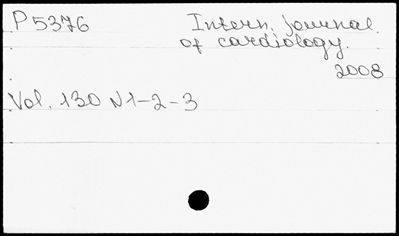 P 5376
Intern. journal
of cardiology.
2008
Vol. 130 N1-2-3